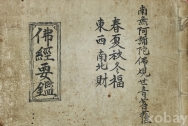 南無阿彌陀佛觀世音菩薩
春夏秋冬福
東西南北財
佛經要鑑
kobay